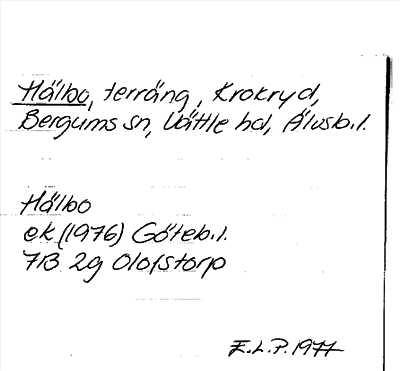 Hålbo, terräng, Krokryd,
Bergums sn, Vättle hd, Älvsb.l.
Hålbo
ek (1976) Göteb.l.
7B 2g Olofstorp
E.L.P. 1977